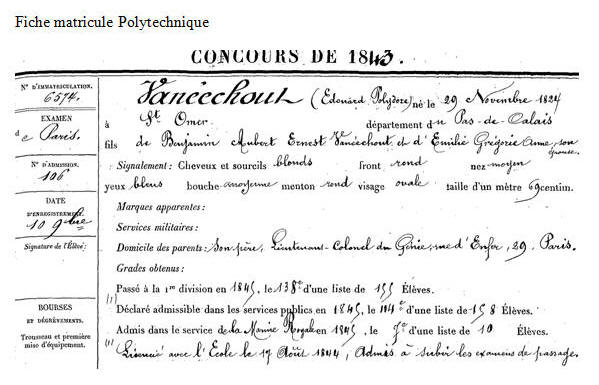 Fiche matricule Polytechnique
CONCOURS DE 1843.
N° D'IMMATRICULATION.
6574.
EXAMEN
de Paris.
N° D'ADMISSION.
106
DATE
D'ENREGISTREMENT.
10 9bre
Signature de l'Élève:
BOURSES
ET DÉGRÈVEMENTS.
Trousseau et première
mise d'équipement.
Vanéechout (Edouard Polydore) né le 29 Novembre 1824
à St Omer département du Pas-de-Calais
fils de Benjamin Aubert Ernest Vanéechout et d'Emilie Grégorie Anne, son épouse.
Signalement: Cheveux et sourcils blonds front rond nez moyen
yeux bleus bouche moyenne menton rond visage ovale taille d'un mètre 69 centim.
Marques apparentes:
Services militaires:
Domicile des parents: Son père, Lieutenant-Colonel du Génie, rue d'Enfer, 29, Paris.
Grades obtenus:
Passé à la 1re division en 1845, le 138e d'une liste de 155 Élèves.
(1)
Déclaré admissible dans les services publics en 1845, le 104e d'une liste de 158 Élèves.
Admis dans le service de la Marine Royale en 1845, le d'une liste de 10 Élèves.
(1) Licencié avec l'Ecole le 17 Août 1844, Admis à subir les examens de passage.